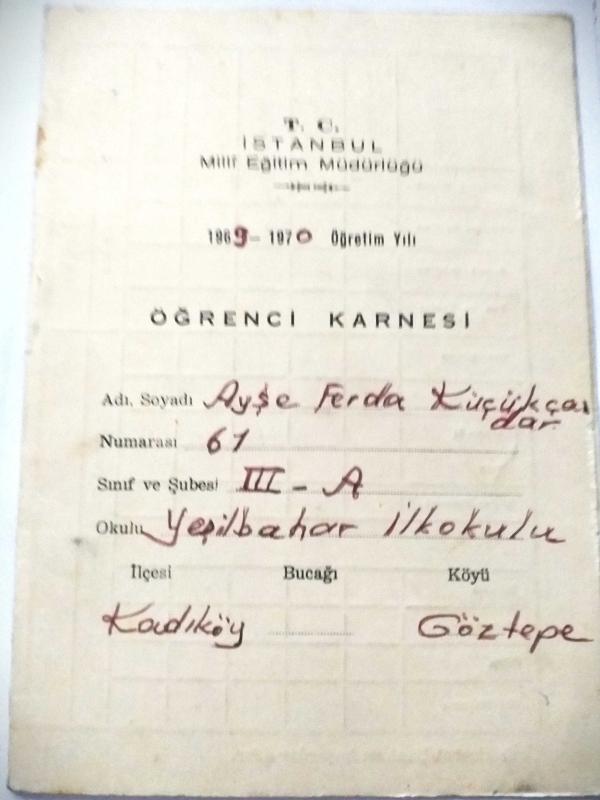 T. C.
İSTANBUL
Millî Eğitim Müdürlüğü
1969 - 1970 Öğretim Yılı
ÖĞRENCİ KARNESİ
Adı, Soyadı Ayşe Ferda Küçükçav
dar
Numarası 61
Sınıf ve Şubesi III - A
Okulu Yeşilbahar İlkokulu
İlçesi Bucağı Köyü
Kadıköy Göztepe